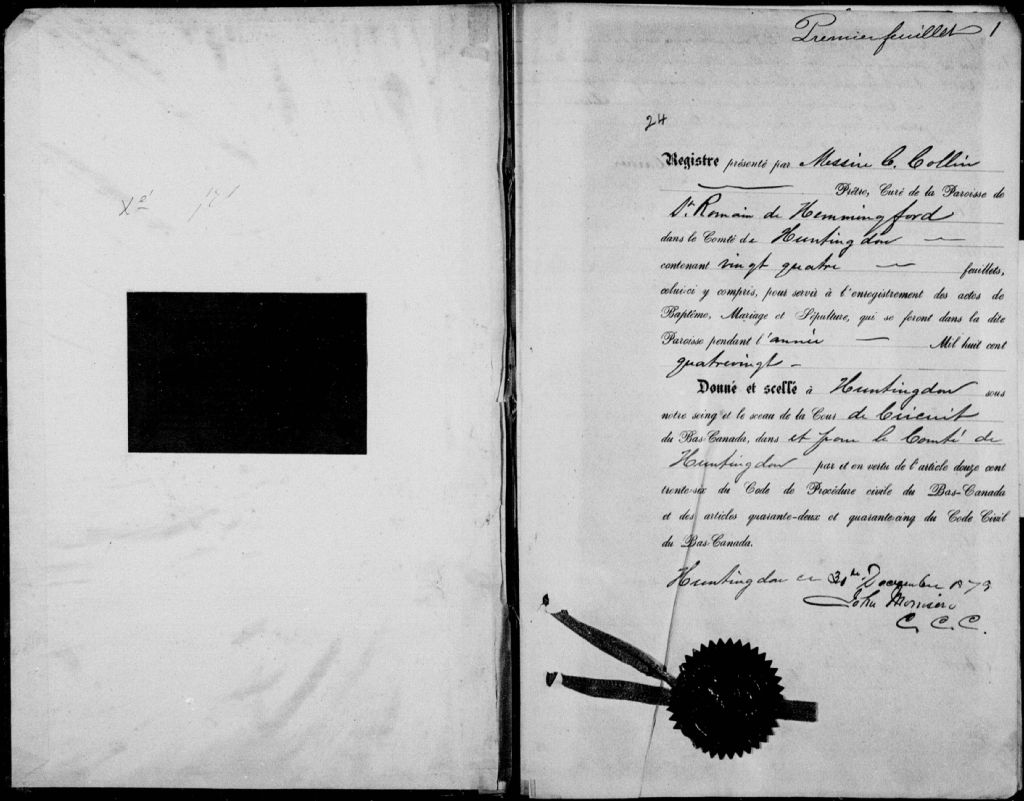 Premier feuillet 1
24
Registre présenté par Messire C. Collin
Prêtre, Curé de la Paroisse de
St. Romain de Hemmingford
dans le Comté de Huntingdon
contenant vingt quatre feuillets,
celui-ci y compris, pour servir à l'enregistrement des actes de
Baptême, Mariage et Sépulture, qui se feront dans la dite
Paroisse pendant l'année Mil huit cent
quatrevingt -
Donné et scellé à Huntingdon sous
notre seing et le sceau de la Cour de Circuit
du Bas-Canada, dans et pour le Comté de
Huntingdon par et en vertu de l'article douze cent
trente-six du Code de Procédure civile du Bas-Canada
et des articles quarante-deux et quarante-cinq du Code Civil
du Bas-Canada.
Huntingdon ce 31 Decembre 1879
John Morrison
C. C. C.